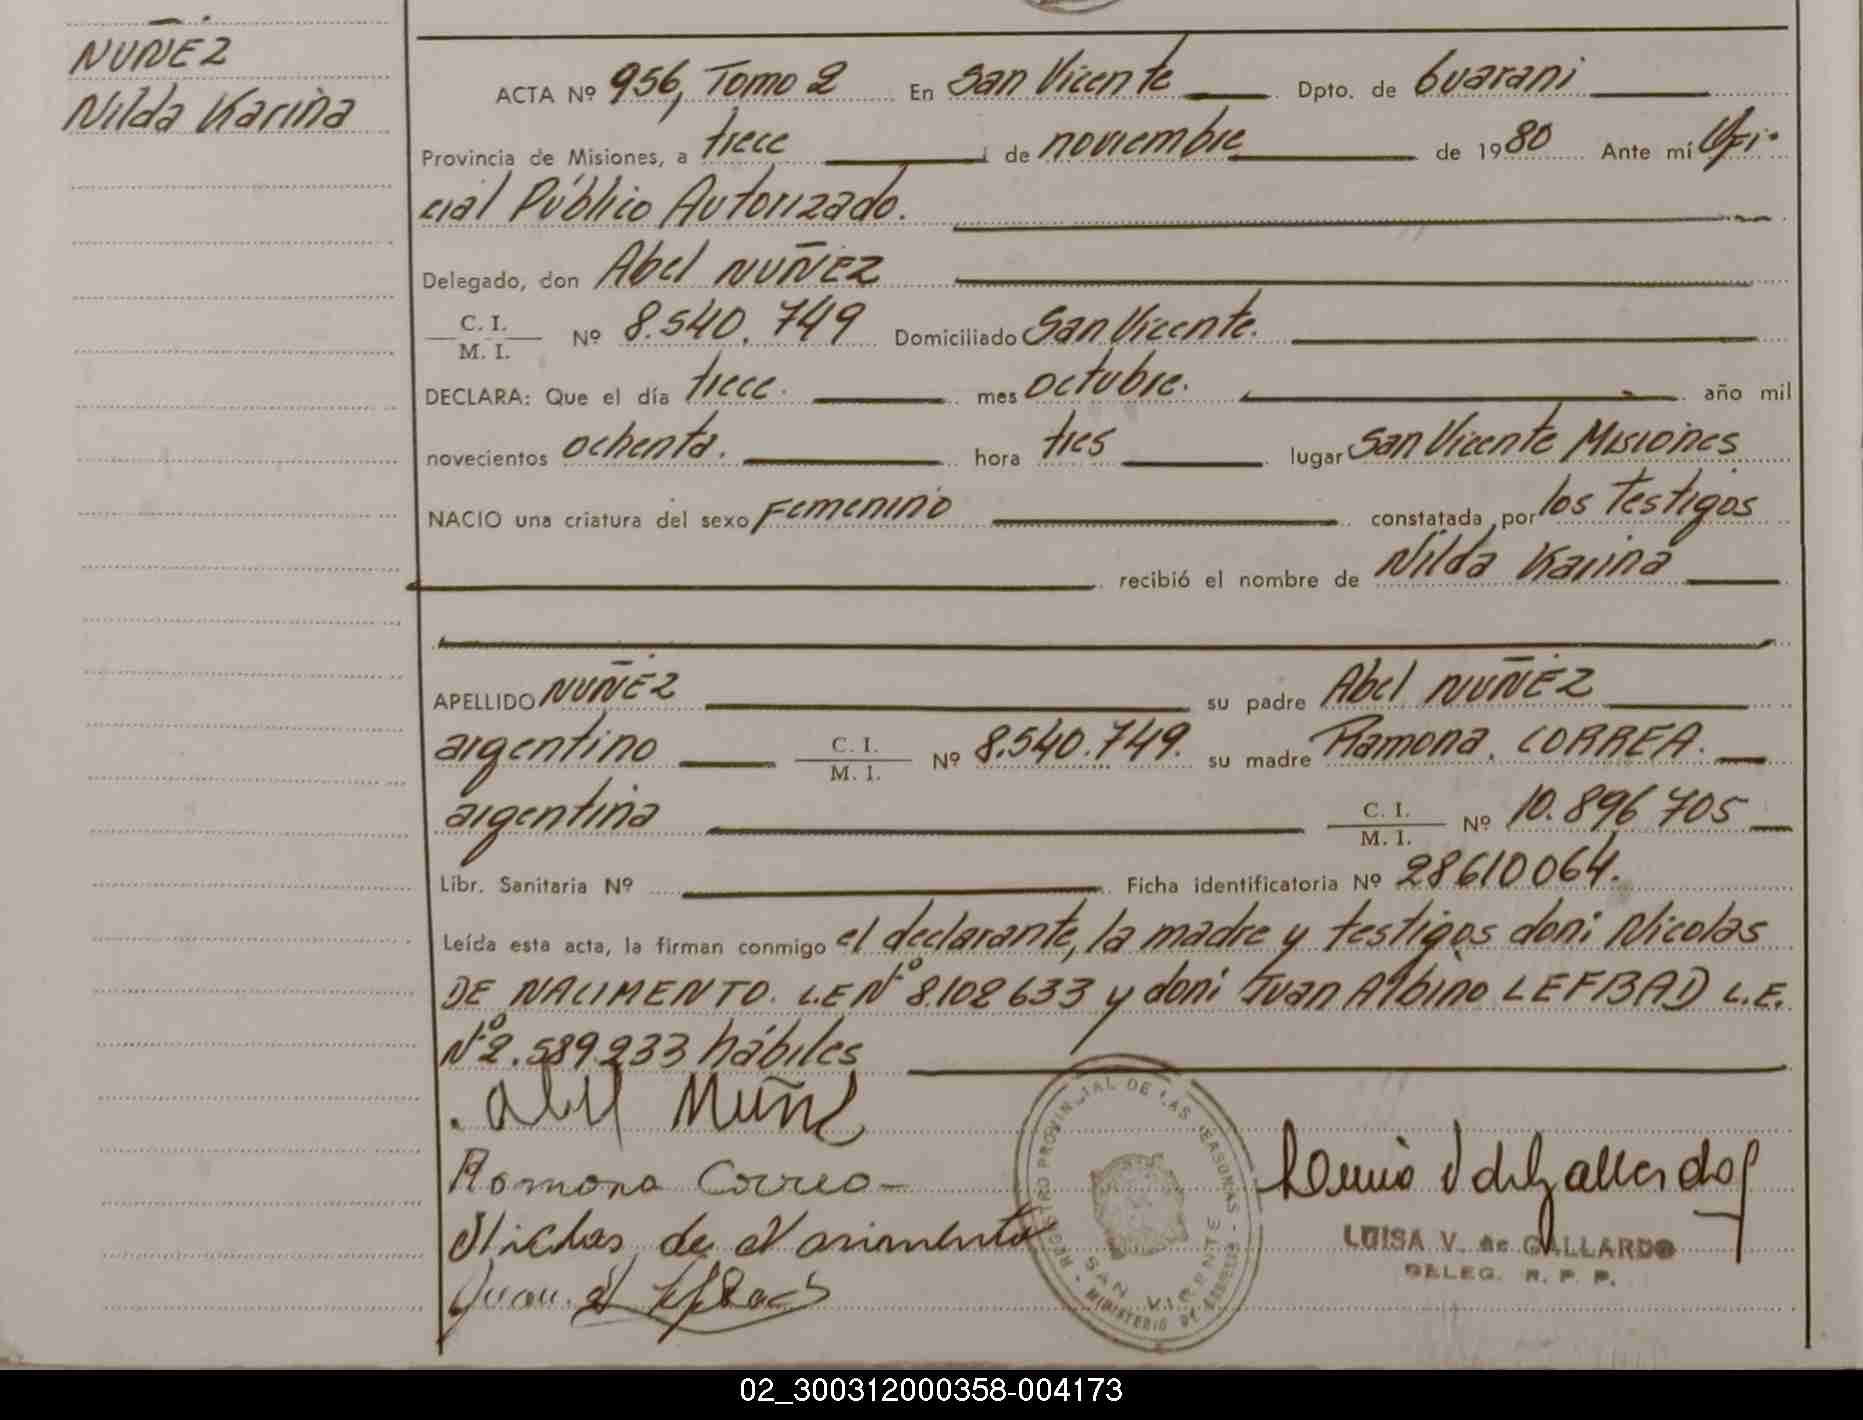 NUÑEZ
Nilda Karina
ACTA Nº 956, Tomo 2 En San Vicente Dpto. de Guarani
Provincia de Misiones, a trece de noviembre de 1980 Ante mí Ofi-
cial Público Autorizado.
Delegado, don Abel NUÑEZ
C. I.
M. I. Nº 8.540.749 Domiciliado San Vicente.
DECLARA: Que el día trece. mes octubre. año mil
novecientos ochenta. hora tres lugar San Vicente Misiones
NACIO una criatura del sexo Femenino constatada por los Testigos
recibió el nombre de Nilda Karina
APELLIDO NUÑEZ su padre Abel NUÑEZ
argentino C. I. M. I. Nº 8.540.749. su madre Ramona CORREA.
argentina C. I. M. I. Nº 10.896.705
Libr. Sanitaria Nº Ficha identificatoria Nº 28610064.
Leída esta acta, la firman conmigo el declarante, la madre y testigos doni Nicolas
DE NACIMENTO. L.E Nº 8.102633 y doni Juan Albino LEFBAD L.E.
Nº 2.589.233 hábiles
Abel Nuñez
Ramona Correa
Nicolas de Nasimento
Juan A Lefbad
REGISTRO PROVINCIAL DE LAS PERSONAS - MINISTERIO DE GOBIERNO
SAN VICENTE
LUISA V. de GALLARDO
DELEG. R. P. P.
02_300312000358-004173